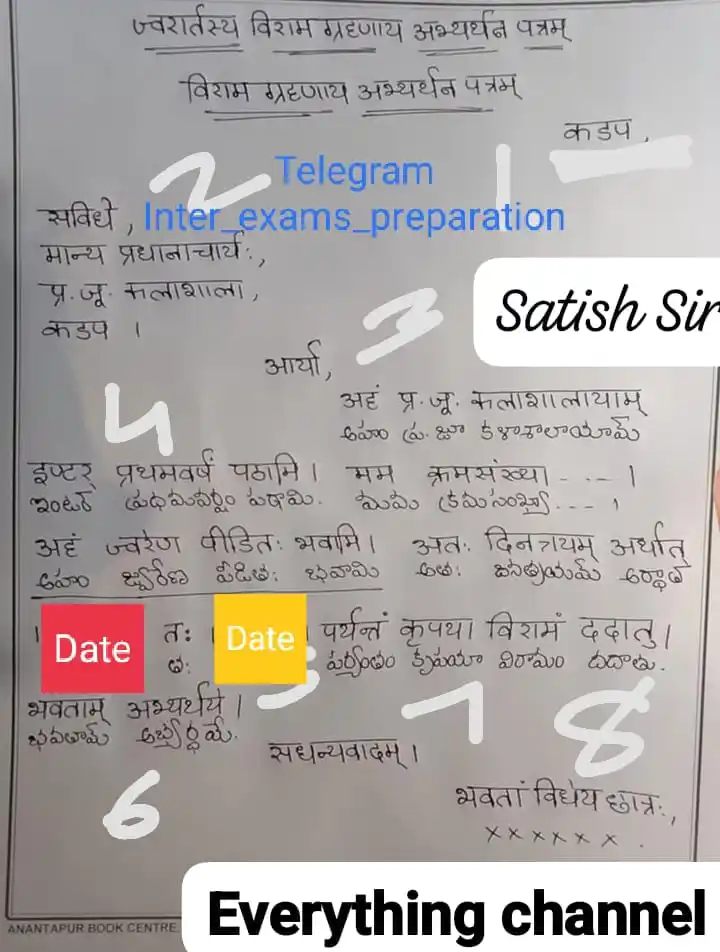 ज्वरार्तस्य विराम ग्रहणाय अभ्यर्थन पत्रम्
विराम ग्रहणाय अभ्यर्थन पत्रम्
कडप,
1
2
Telegram
सविधे,
Inter_exams_preparation
मान्य प्रधानाचार्यः,
प्र. जू. कलाशाला,
Satish Sir
3
कडप ।
आर्या,
4
अहं प्र. जू. कलाशालायाम्
అహం ప్ర. జూ కళాశాలాయామ్
इण्टर् प्रथमवर्षं पठामि । मम क्रमसंख्या - .. - ।
ఇంటర్ ప్రథమవర్షం పఠామి. మమ క్రమసంఖ్యా - - - ,
अहं ज्वरेण पीडितः भवामि । अतः दिनत्रयम् अर्थात्
అహం జ్వరేణ పీడితః భవామి అతః దినత్రయమ్ అర్థాత్
Date तः । Date । पर्यन्तं कृपया विरामं ददातु ।
తః పర్యంతం కృపయా విరామం దదాతు.
5
भवताम् अभ्यर्थये ।
భవతామ్ అభ్యర్థయే.
7
8
सधन्यवादम् ।
6
भवतां विधेय छात्रः,
× × × × × × .
Everything channel
ANANTAPUR BOOK CENTRE